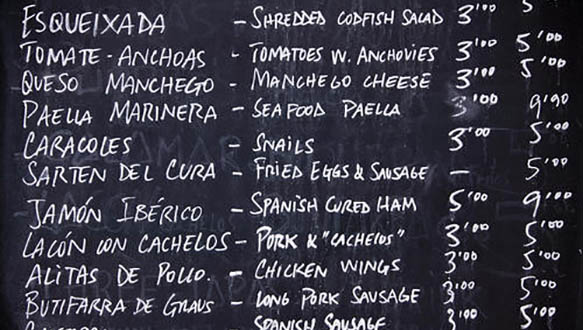 ESQUEIXADA - SHREDDED CODFISH SALAD 3'00 5
TOMATE-ANCHOAS - TOMATOES W. ANCHOVIES 3'00 5'00
QUESO MANCHEGO - MANCHEGO CHEESE 3'00 5'00
PAELLA MARINERA - SEAFOOD PAELLA 3'00 9'90
CARACOLES - SNAILS 3'00 5'00
SARTEN DEL CURA - FRIED EGGS & SAUSAGE - 5'00
JAMÓN IBÉRICO - SPANISH CURED HAM 5'00 9'00
LACÓN CON CACHELOS - PORK & "CACHELOS" 3'00 5'00
ALITAS DE POLLO. - CHICKEN WINGS 3'00 5'00
BUTIFARRA DE GRAUS - LONG PORK SAUSAGE 3'00 5'00
SPANISH SAUSAGE